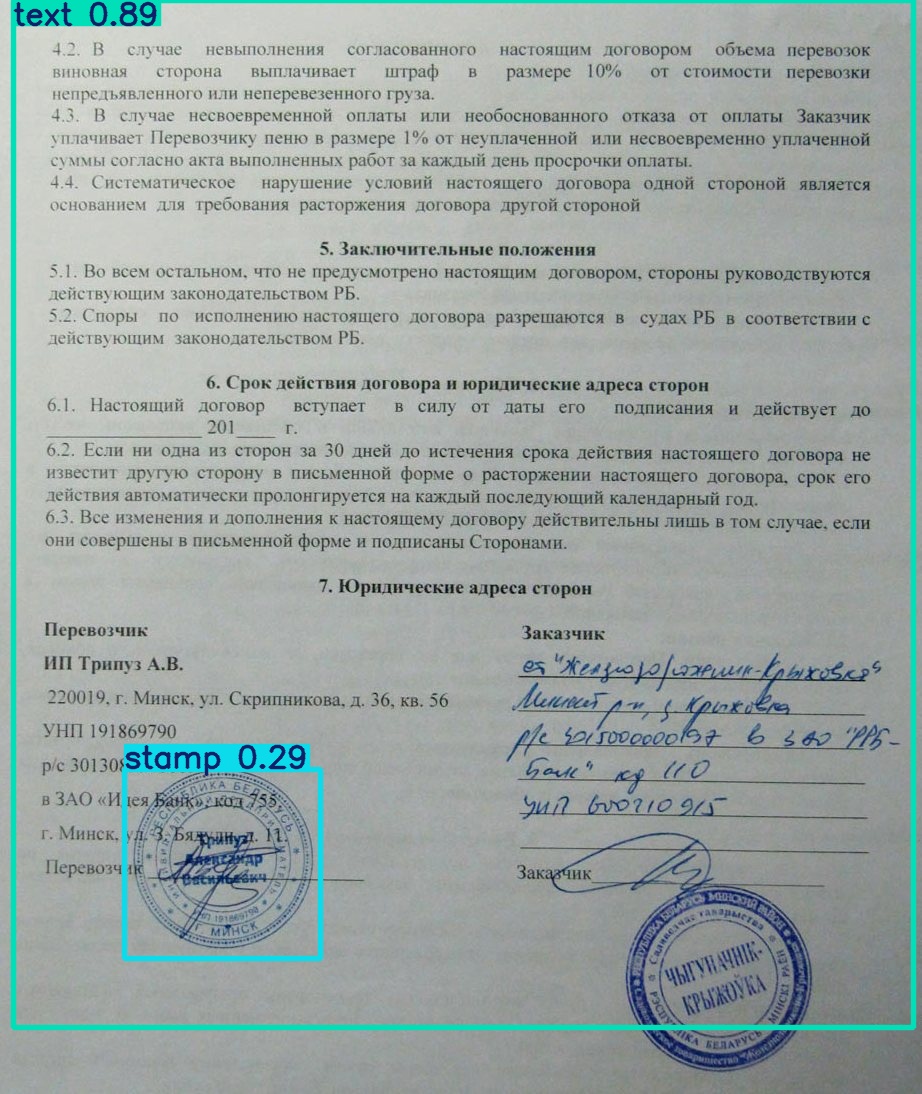 text 0.89
4.2. В случае невыполнения согласованного настоящим договором объема перевозок
виновная сторона выплачивает штраф в размере 10% от стоимости перевозки
непредъявленного или неперевезенного груза.
4.3. В случае несвоевременной оплаты или необоснованного отказа от оплаты Заказчик
уплачивает Перевозчику пеню в размере 1% от неуплаченной или несвоевременно уплаченной
суммы согласно акта выполненных работ за каждый день просрочки оплаты.
4.4. Систематическое нарушение условий настоящего договора одной стороной является
основанием для требования расторжения договора другой стороной
5. Заключительные положения
5.1. Во всем остальном, что не предусмотрено настоящим договором, стороны руководствуются
действующим законодательством РБ.
5.2. Споры по исполнению настоящего договора разрешаются в судах РБ в соответствии с
действующим законодательством РБ.
6. Срок действия договора и юридические адреса сторон
6.1. Настоящий договор вступает в силу от даты его подписания и действует до
________________ 201____ г.
6.2. Если ни одна из сторон за 30 дней до истечения срока действия настоящего договора не
известит другую сторону в письменной форме о расторжении настоящего договора, срок его
действия автоматически пролонгируется на каждый последующий календарный год.
6.3. Все изменения и дополнения к настоящему договору действительны лишь в том случае, если
они совершены в письменной форме и подписаны Сторонами.
7. Юридические адреса сторон
Перевозчик
ИП Трипуз А.В.
220019, г. Минск, ул. Скрипникова, д. 36, кв. 56
УНП 191869790
р/с 301308
stamp 0.29
в ЗАО «Идея Банк», код 755,
г. Минск, ул. З. Бядули, д. 11.
Перевозчик
РЕСПУБЛИКА БЕЛАРУСЬ
ИНДИВИДУАЛЬНЫЙ ПРЕДПРИНИМАТЕЛЬ
Трипуз
Александр
Васильевич
УНП 191869790
Г. МИНСК
Заказчик
"Железнодорожник-Крыжовка"
р-н, Крыжовка
р/с в ЗАО "РРБ-
Банк" код 110
УНП 600210915
Заказчик
РЭСПУБЛІКА БЕЛАРУСЬ МІНСКІ РАЁН
Садаводчае таварыства
ЧЫГУНАЧНІК-
КРЫЖОЎКА